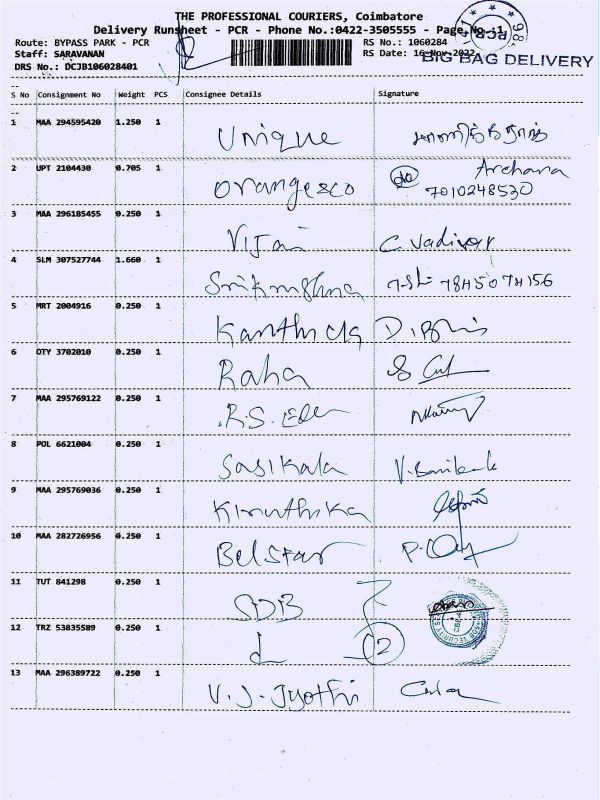 THE PROFESSIONAL COURIERS, Coimbatore
Delivery Runsheet - PCR - Phone No.:0422-3505555 - Page No.:1
Route: BYPASS PARK - PCR RS No.: 1060284
Staff: SARAVANAN RS Date: 16-Nov-2022
DRS No.: DCJB106028401
BIG BAG DELIVERY
S No Consignment No Weight PCS Consignee Details Signature
1 MAA 294595420 1.250 1 Unique
2 UPT 2104430 0.705 1 Orangesco Archana
7010248530
3 MAA 296185455 0.250 1 Vijai C. Vadivar
4 SLM 307527744 1.660 1 Srikrishna
5 MRT 2004916 0.250 1
6 OTY 3702010 0.250 1 Raha
7 MAA 295769122 0.250 1 R.S.
8 POL 6621004 0.250 1 Sasikala
9 MAA 295769036 0.250 1 Kiruthika
10 MAA 282726956 0.250 1 Belstar
11 TUT 841298 0.250 1 SDB
12 TRZ 53835589 0.250 1 2
13 MAA 296389722 0.250 1 V.J. Jyothi